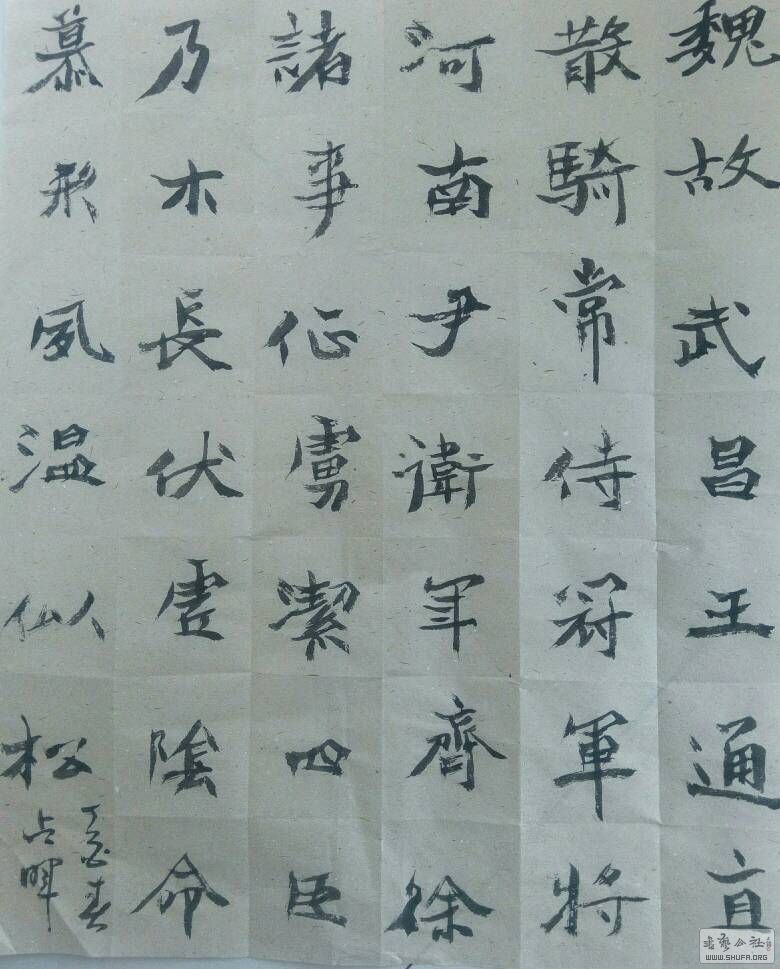 魏故武昌王通直
散騎常侍冠軍將
河南尹衛軍齊徐
諸事征虜潔四臣
乃木長伏虛陰命
慕形夙温似人松
丁酉春
占暉
WWW.SHUFA.ORG